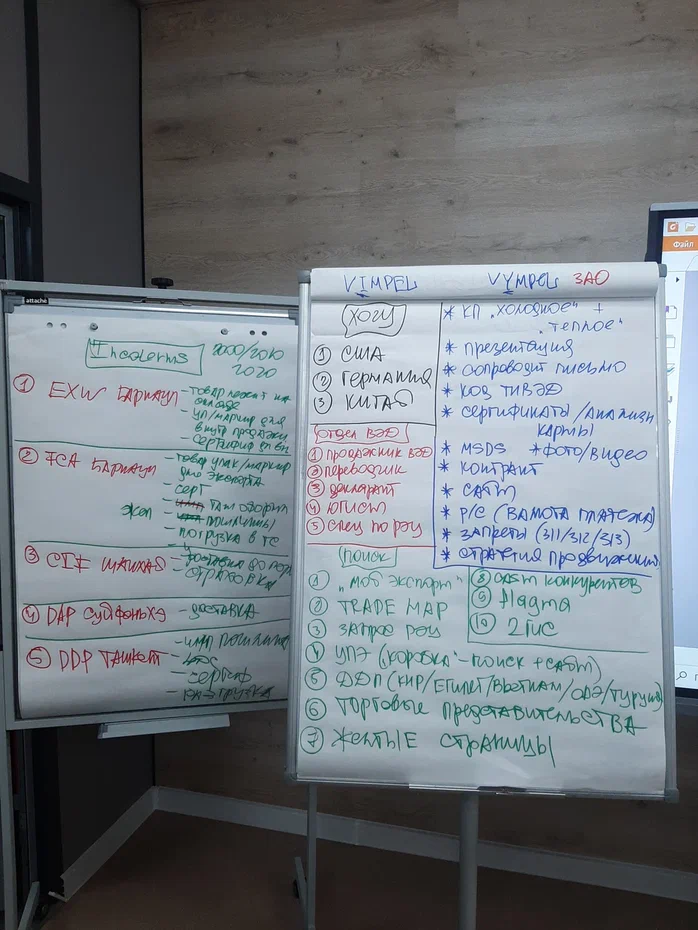 attache
Incoterms 2000/2010
2020
1 EXW БАРНАУЛ - товар лежит на
складе
- уп/маркир для
внутр продажи
- сертиф
2 FCA БАРНАУЛ - товар упак/маркир
для экспорта
- серт
эксп - там оформл
- пошлины
- погрузка в ТС
3 CIF ШАНХАЙ - доставка до
- страховка
4 DAP СУЙФЭНЬХЭ - доставка
5 DDP ТАШКЕНТ - имп пошлина
- НДС
- сертиф
VIMPEL VYMPEL ЗАО
ХОЧУ
1 США
2 ГЕРМАНИЯ
3 КИТАЙ
ОТДЕЛ ВЭД
1 продажник ВЭД
2 переводчик
3 декларант
4 юрист
5 спец по РЭЦ
* КП "ХОЛОДНОЕ" +
"ТЕПЛОЕ"
* презентация
* сопроводит письмо
* код ТНВЭД
* сертификаты/анализы
карты
* MSDS * фото/видео
* контракт
* сайт
* Р/С (валюта платежа)
* запреты (311/312/313)
* стратегия продвижения
ПОИСК
1 "Мой экспорт"
2 TRADE MAP
3 запрос РЭЦ
4 УПЭ ("коробка" - поиск + сайт)
5 ДДП (КНР/Египет/Вьетнам/ОАЭ/Турция)
6 Торговые представительства
7 Желтые страницы
8 сайт конкурентов
9 flagma
10 2ГИС
Файл